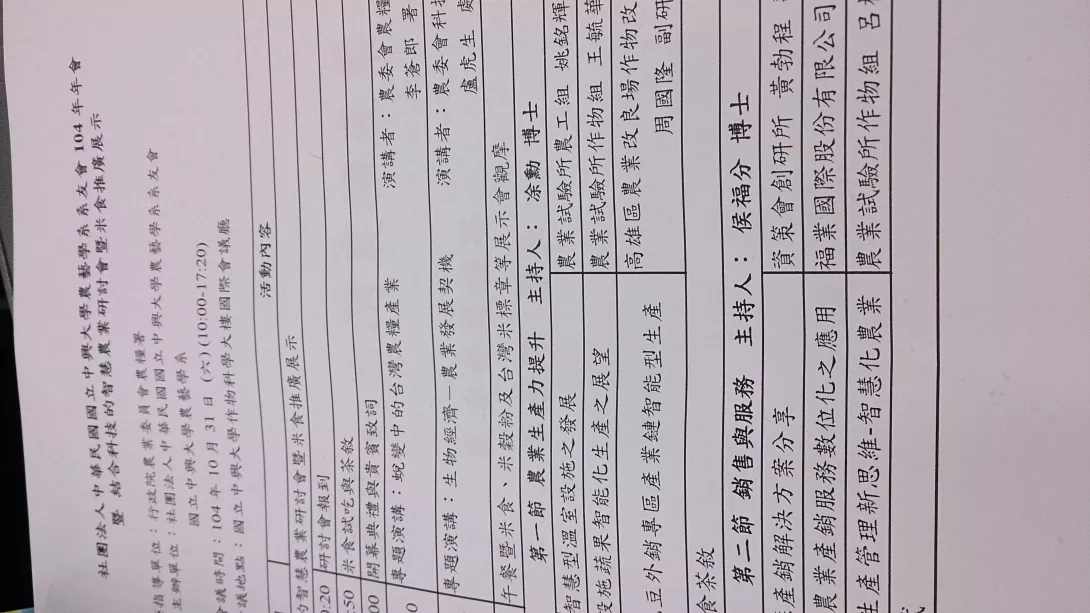 社團法人中華民國國立中興大學農藝學系系友會 104 年年會
暨 結合科技的智慧農業研討會暨米食推廣展示
指導單位：行政院農業委員會農糧署
主辦單位：社團法人中華民國國立中興大學農藝學系系友會
國立中興大學農藝學系
會議時間：104 年 10 月 31 日 (六) (10:00-17:20)
議地點：國立中興大學作物科學大樓國際會議廳
活動內容
的智慧農業研討會暨米食推廣展示
:20 研討會報到
:50 米食試吃與茶敘
00 開幕典禮與貴賓致詞
0 專題演講：蛻變中的台灣農糧產業 演講者：農委會農糧
李蒼郎 署
專題演講：生物經濟－農業發展契機 演講者：農委會科技
盧虎生 處
午餐暨米食、米穀粉及台灣米標章等展示會觀摩
第一節 農業生產力提升 主持人：凃勳 博士
智慧型溫室設施之發展 農業試驗所農工組 姚銘輝
設施蔬果智能化生產之展望 農業試驗所作物組 王毓華
毛豆外銷專區產業鏈智能型生產 高雄區農業改良場作物改
周國隆 副研
食茶敘
第二節 銷售與服務 主持人：侯福分 博士
產銷解決方案分享 資策會創研所 黃勃程
農業產銷服務數位化之應用 福業國際股份有限公司
生產管理新思維-智慧化農業 農業試驗所作物組 呂